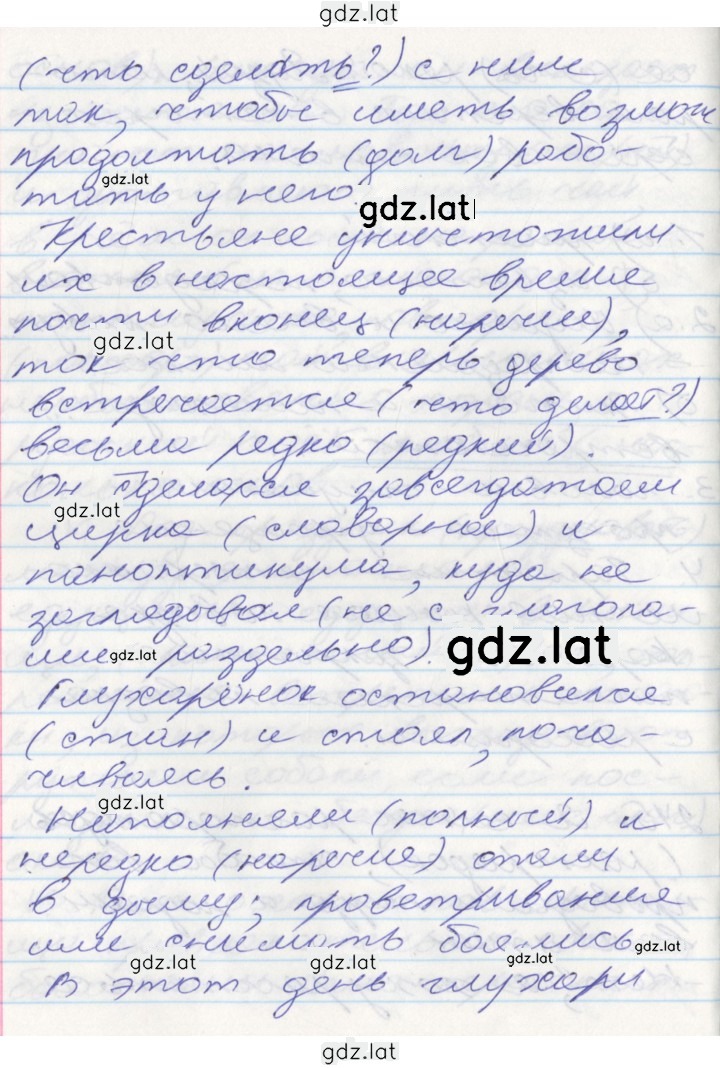 gdz.lat
(что сделать?) с ним
так, чтобы иметь возмож
продолжать (долг) рабо-
gdz.lat
тать у него.
gdz.lat
Крестьяне уничтожили
их в настоящее время
почти вконец (наречие),
gdz.lat
так что теперь дерево
встречается (что делает?)
весьма редко (редкий).
Он сделался завсегдатаем
gdz.lat
цирка (словарное) и
паноптикума, куда не
заглядывал (не с глагола-
ми раздельно).
gdz.lat
gdz.lat
Глухарёнок остановился
(стан) и стоял, пока-
чиваясь.
gdz.lat
Наполняли (полный) и
нередко (наречие) спали
в дыму; проветривания
или снимать боялись.
gdz.lat
gdz.lat
gdz.lat
gdz.lat
В этот день глухари
gdz.lat